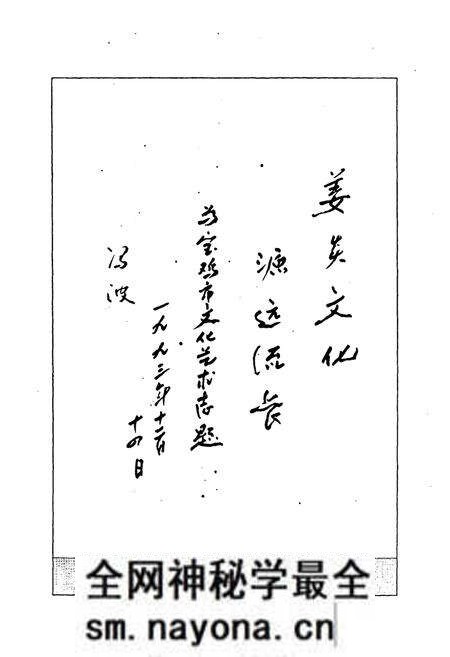 姜炎文化
源远流长
为宝鸡市文化艺术志题
一九九三年十二月
十四日
冯波
全网神秘学最全
sm.nayona.cn